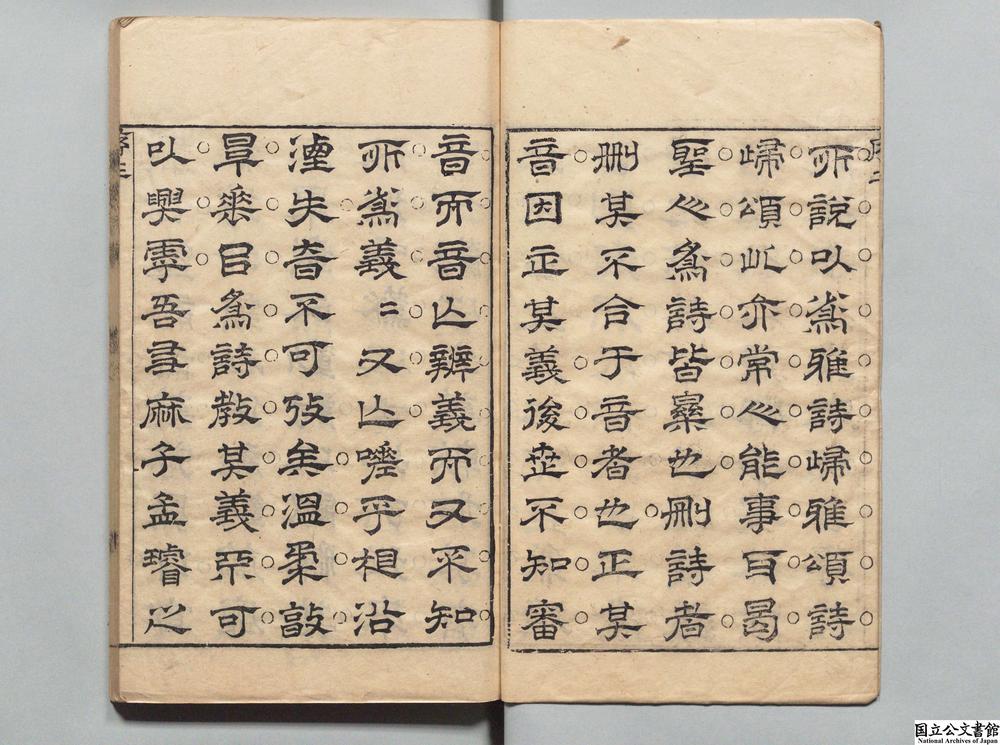 所說以爲雅詩歸雅頌詩
歸頌此亦常人能事曷
聖人爲詩皆樂也刪詩者
刪其不合于音者也正其
音因正其義後世不知審
音而音亾辨義而又不知
所爲義二又亾嗟乎相沿
湮失杳不可攷矣溫柔敦
厚葢曰爲詩教其義亦可
以興虖吾君麻子孟璿之
序三
国立公文書館
National Archives of Japan